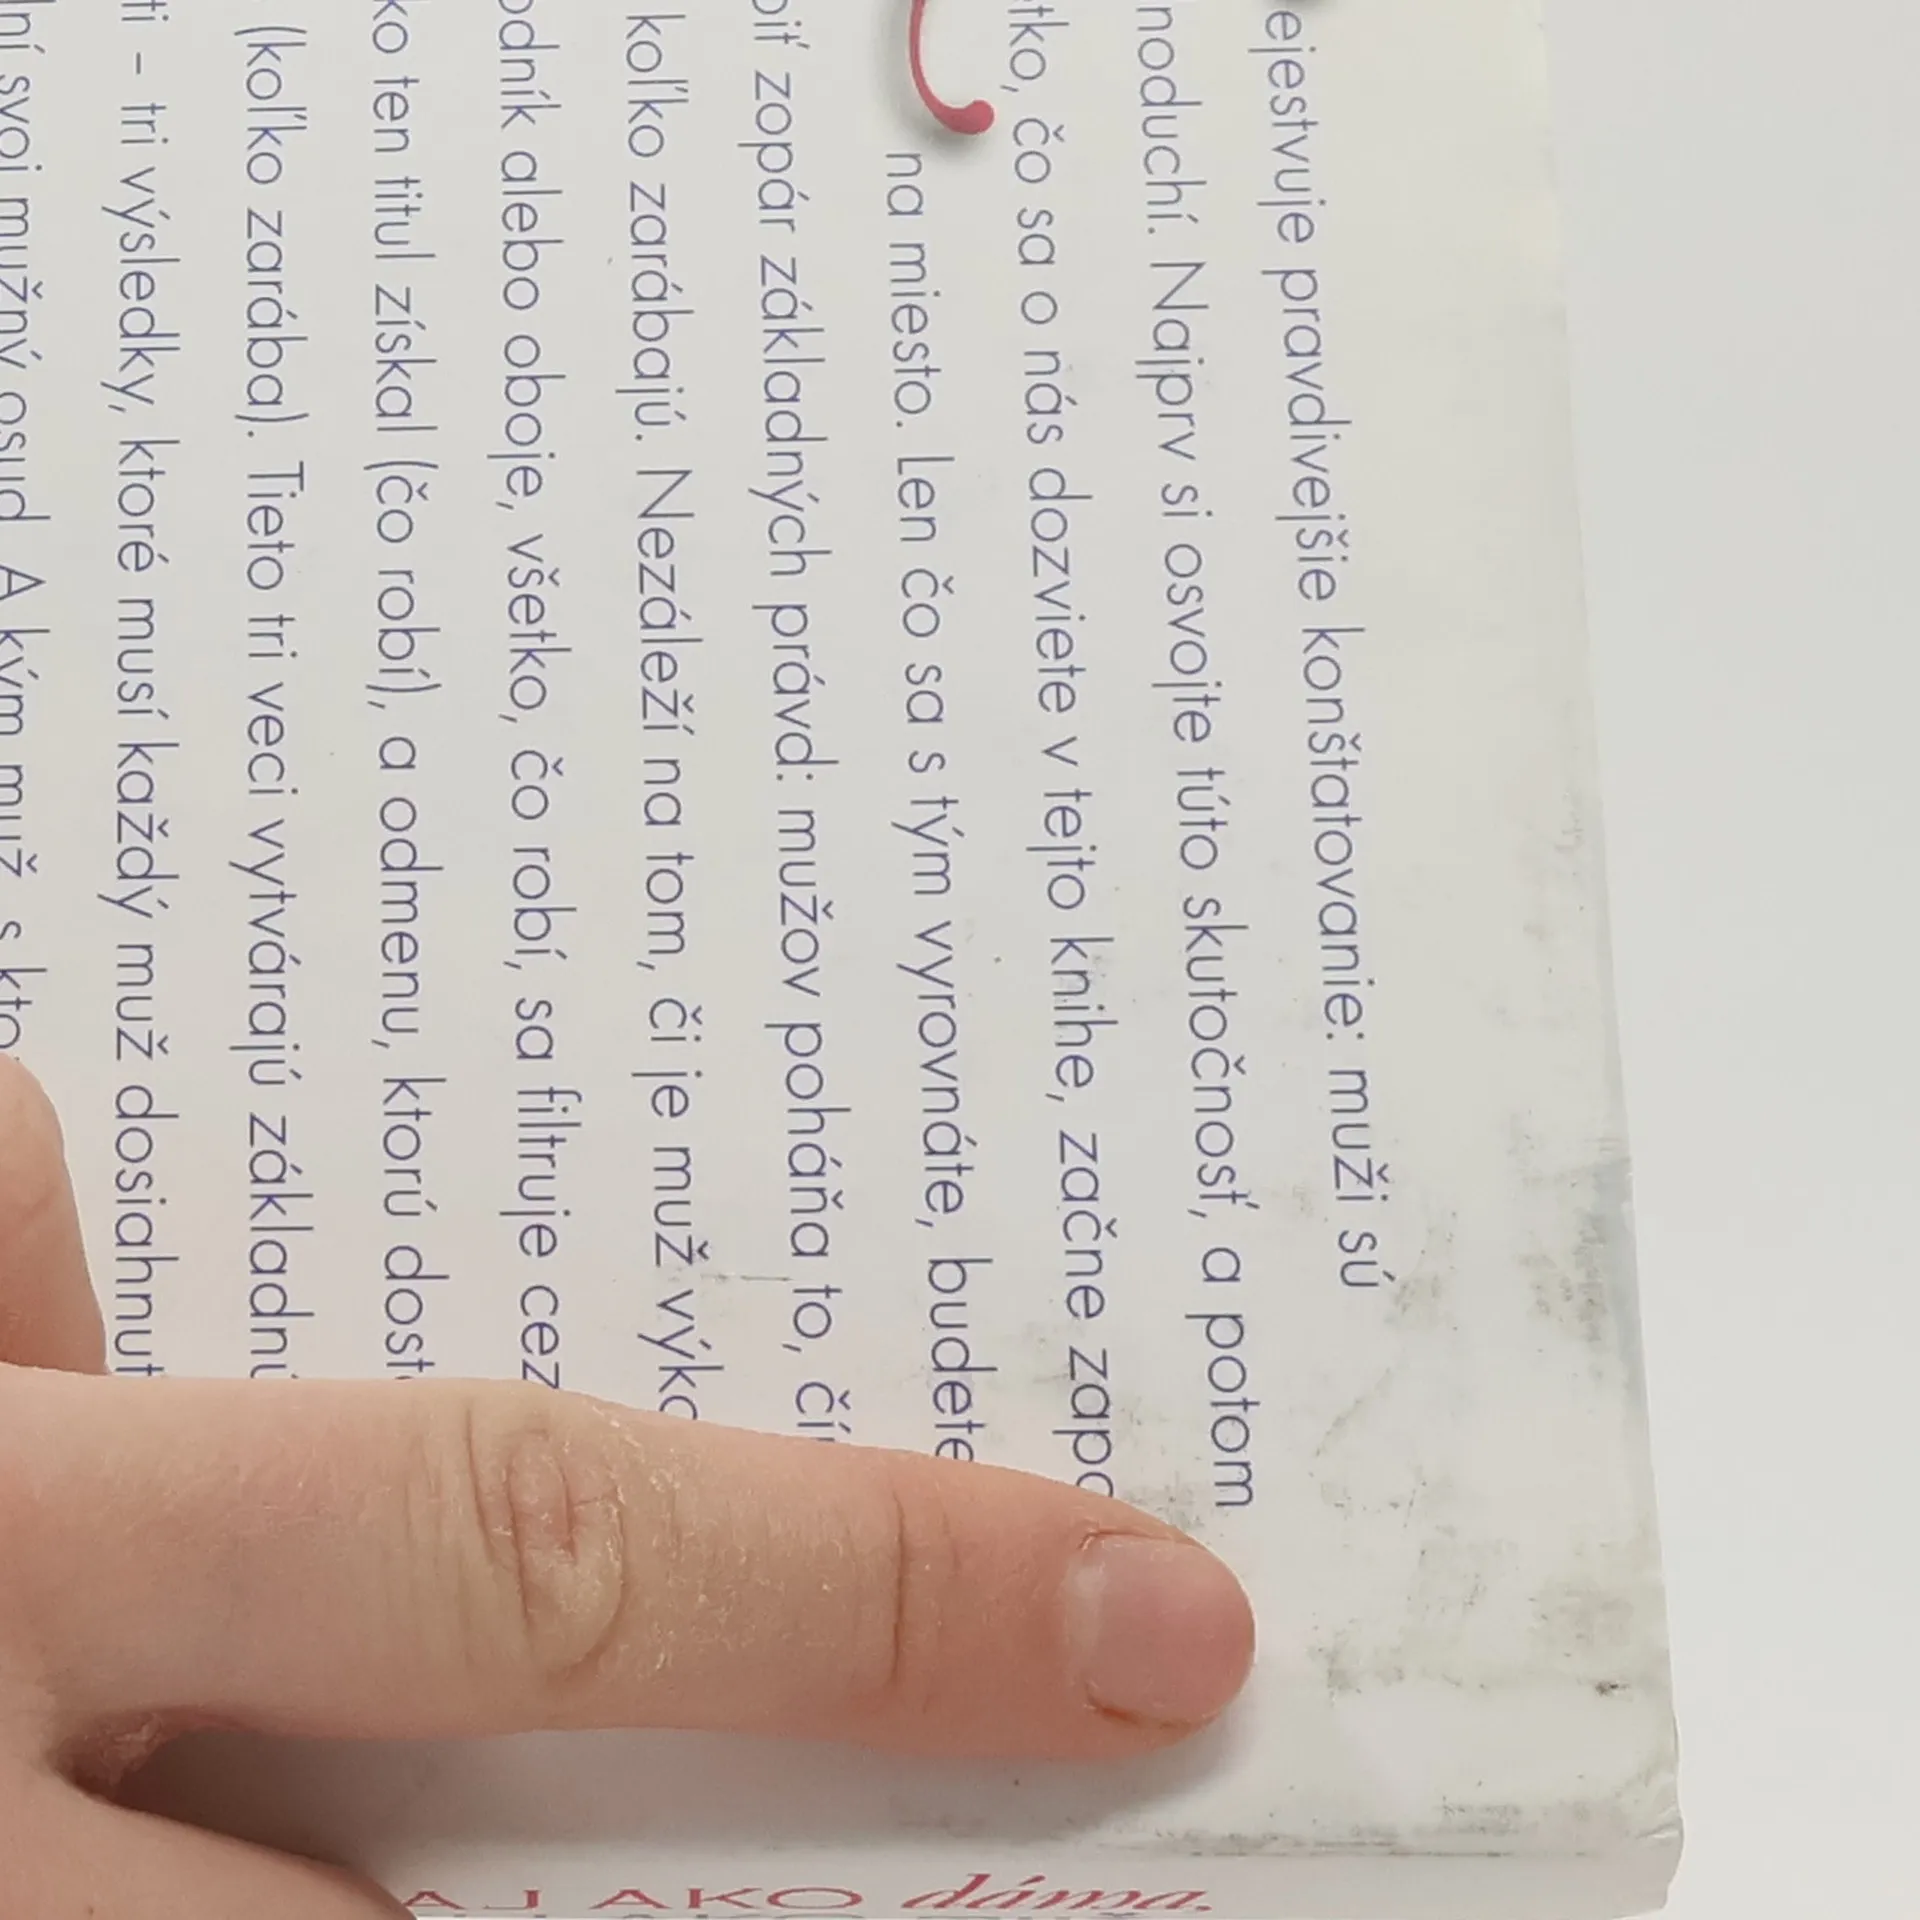 ejestvuje pravdivejšie konštatovanie: muži sú
noduchí. Najprv si osvojte túto skutočnosť, a potom
tko, čo sa o nás dozviete v tejto knihe, začne zapa
na miesto. Len čo sa s tým vyrovnáte, budete
biť zopár základných právd: mužov poháňa to, čí
koľko zarábajú. Nezáleží na tom, či je muž výko
odník alebo oboje, všetko, čo robí, sa filtruje cez
ko ten titul získal (čo robí), a odmenu, ktorú dost
(koľko zarába). Tieto tri veci vytvárajú základnú
ti – tri výsledky, ktoré musí každý muž dosiahnuť
lní svoj mužný osud. A kým muž s kto
AJ AKO dáma,